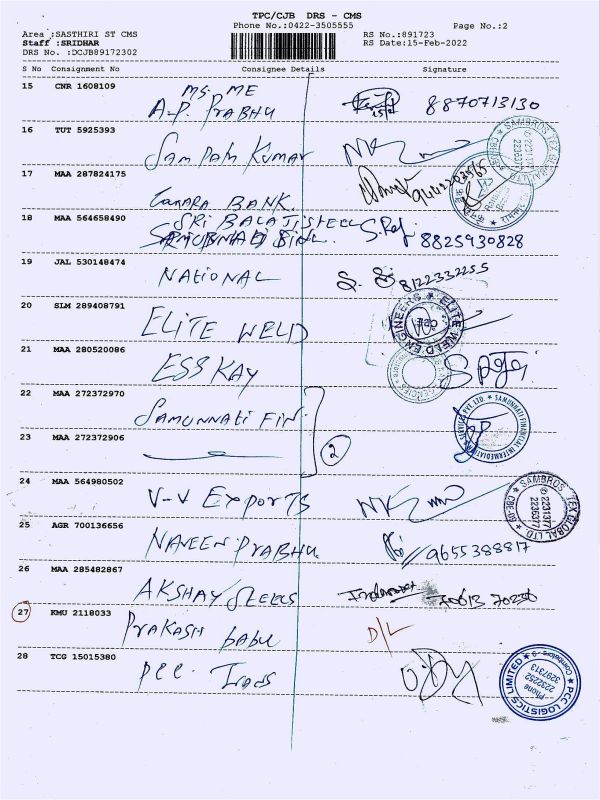 TPC/CJB DRS - CMS
Phone No.:0422-3505555
Page No.:2
Area :SASTHIRI ST CMS
RS No.:891723
Staff :SRIDHAR
RS Date:15-Feb-2022
DRS No. :DCJB89172302
S No Consignment No Consignee Details Signature
15 CNR 1608109 MS. ME
A.P. PRABHU 8870713130
16 TUT 5925393
Sampath Kumar
17 MAA 287824175
Canara BANK.
18 MAA 564658490 SRI BALAJI STEEL
8825930828
19 JAL 530148474
NATIONAL 8122332255
20 SLM 289408791
ELITE WELD
ELITE WELD ENGINEERS
21 MAA 280520086
ESSKAY
22 MAA 272372970
SAMUNNATI FIN
SAMUNNATI FINANCIAL INTERMEDIATION SERVICES PVT. LTD.
23 MAA 272372906
2
24 MAA 564980502
V-V Exports
SAMBROS TEX GLOBAL LTD.
2231377
2236377
25 AGR 700136656
NAVEEN PRABHU. 9655388817
26 MAA 285482867
AKSHAY STEELS
27 KMU 2118033
PRAKASH babu D/L
28 TCG 15015380
PCC. Trads
PCC LOGISTICS LIMITED
Coimbatore - 9
Phone
2232252
3297313